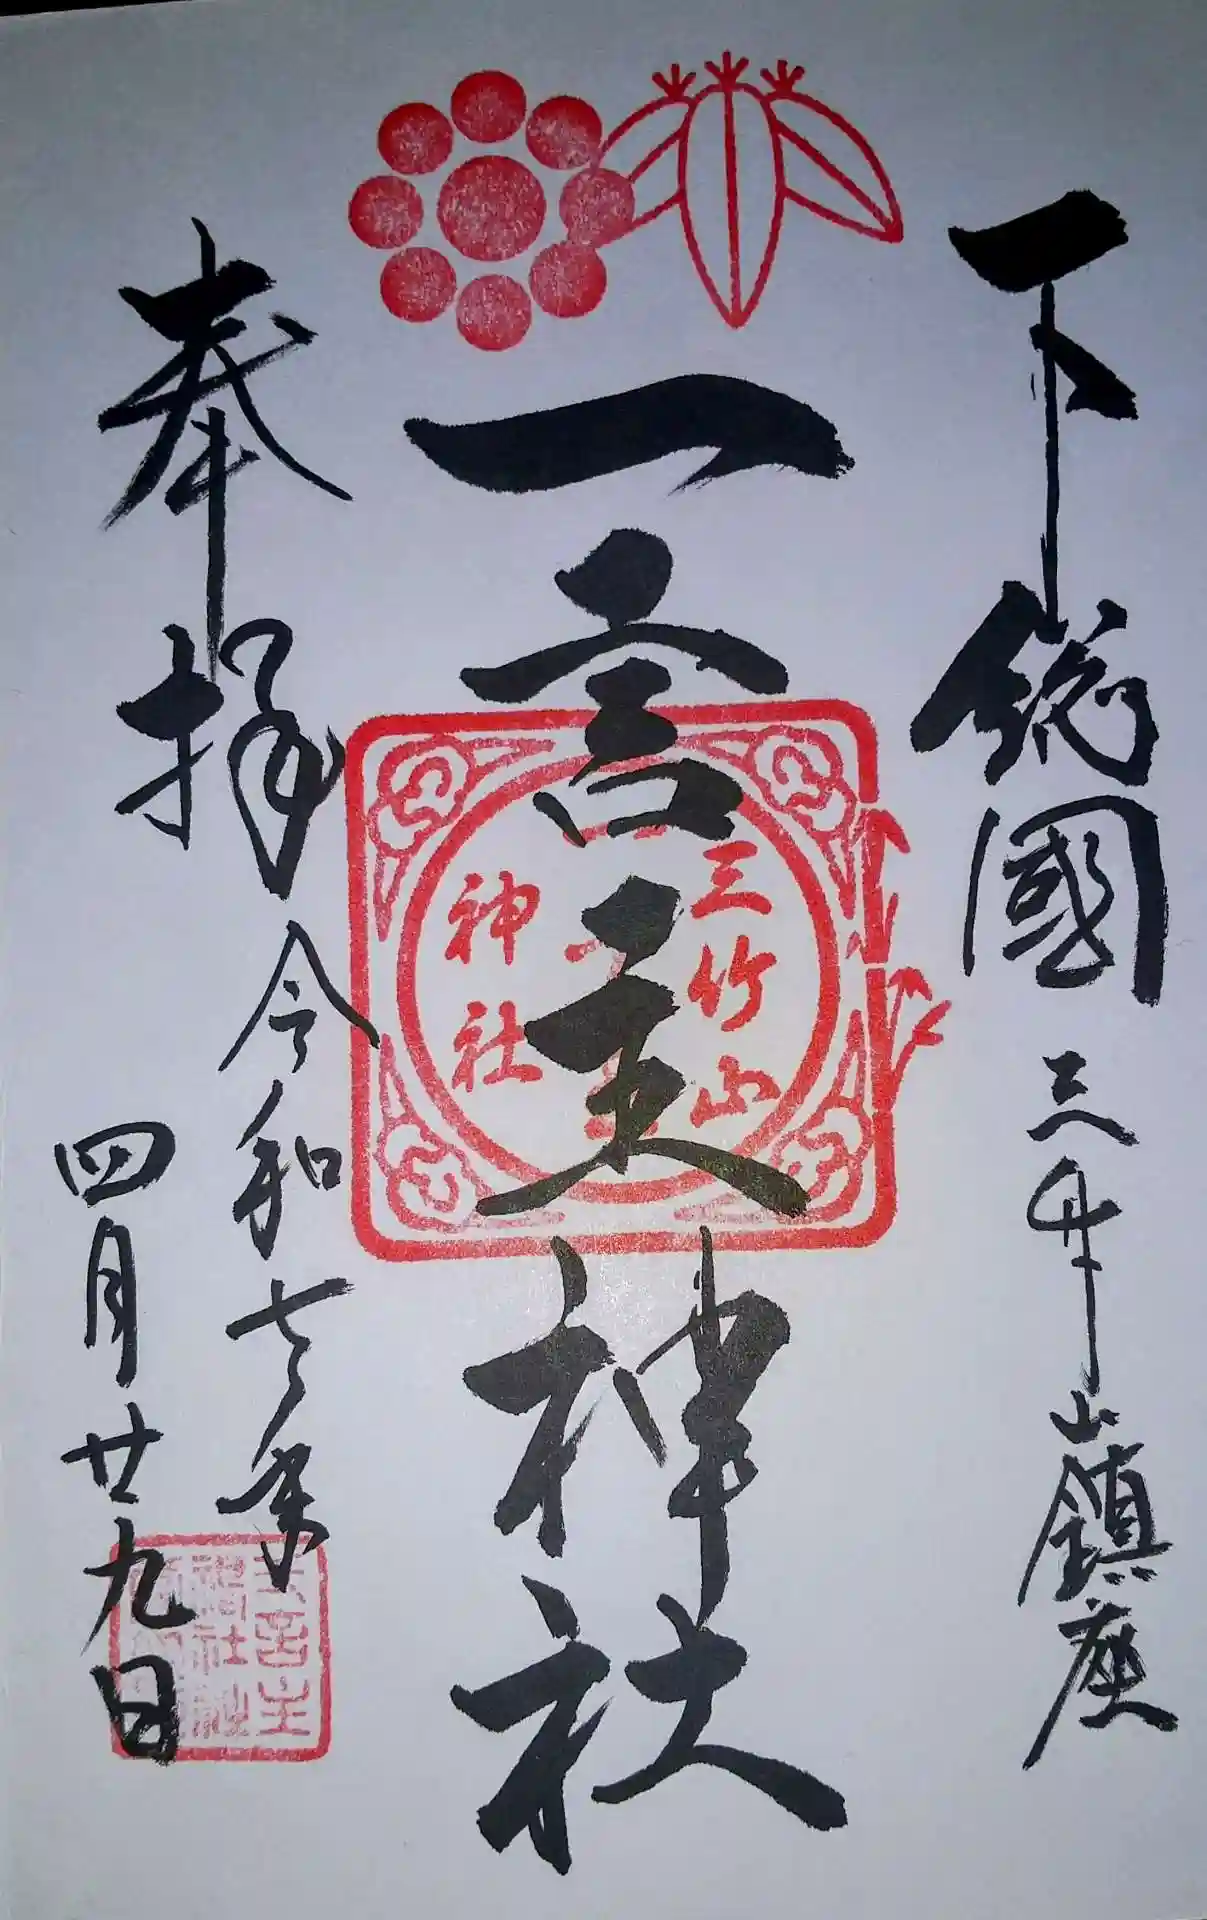 下総國 三竹山鎮座
一言主神社
三竹山
神社
奉拝
令和七年
四月廿九日